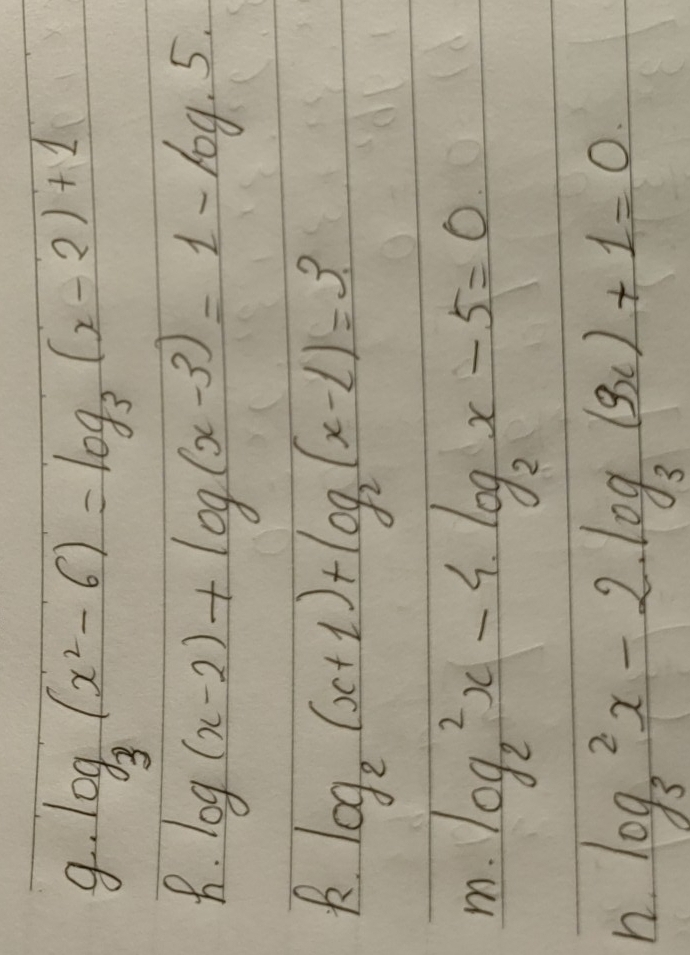 g. log₃ (x² - 6) = log₃ (x - 2) + 1
h. log (x - 2) + log (x - 3) = 1 - log 5.
k. log₂ (x + 1) + log₂ (x - 1) = 3.
m. log₂² x - 4. log₂ x - 5 = 0
n. log₃² x - 2. log₃ (3x) + 1 = 0.